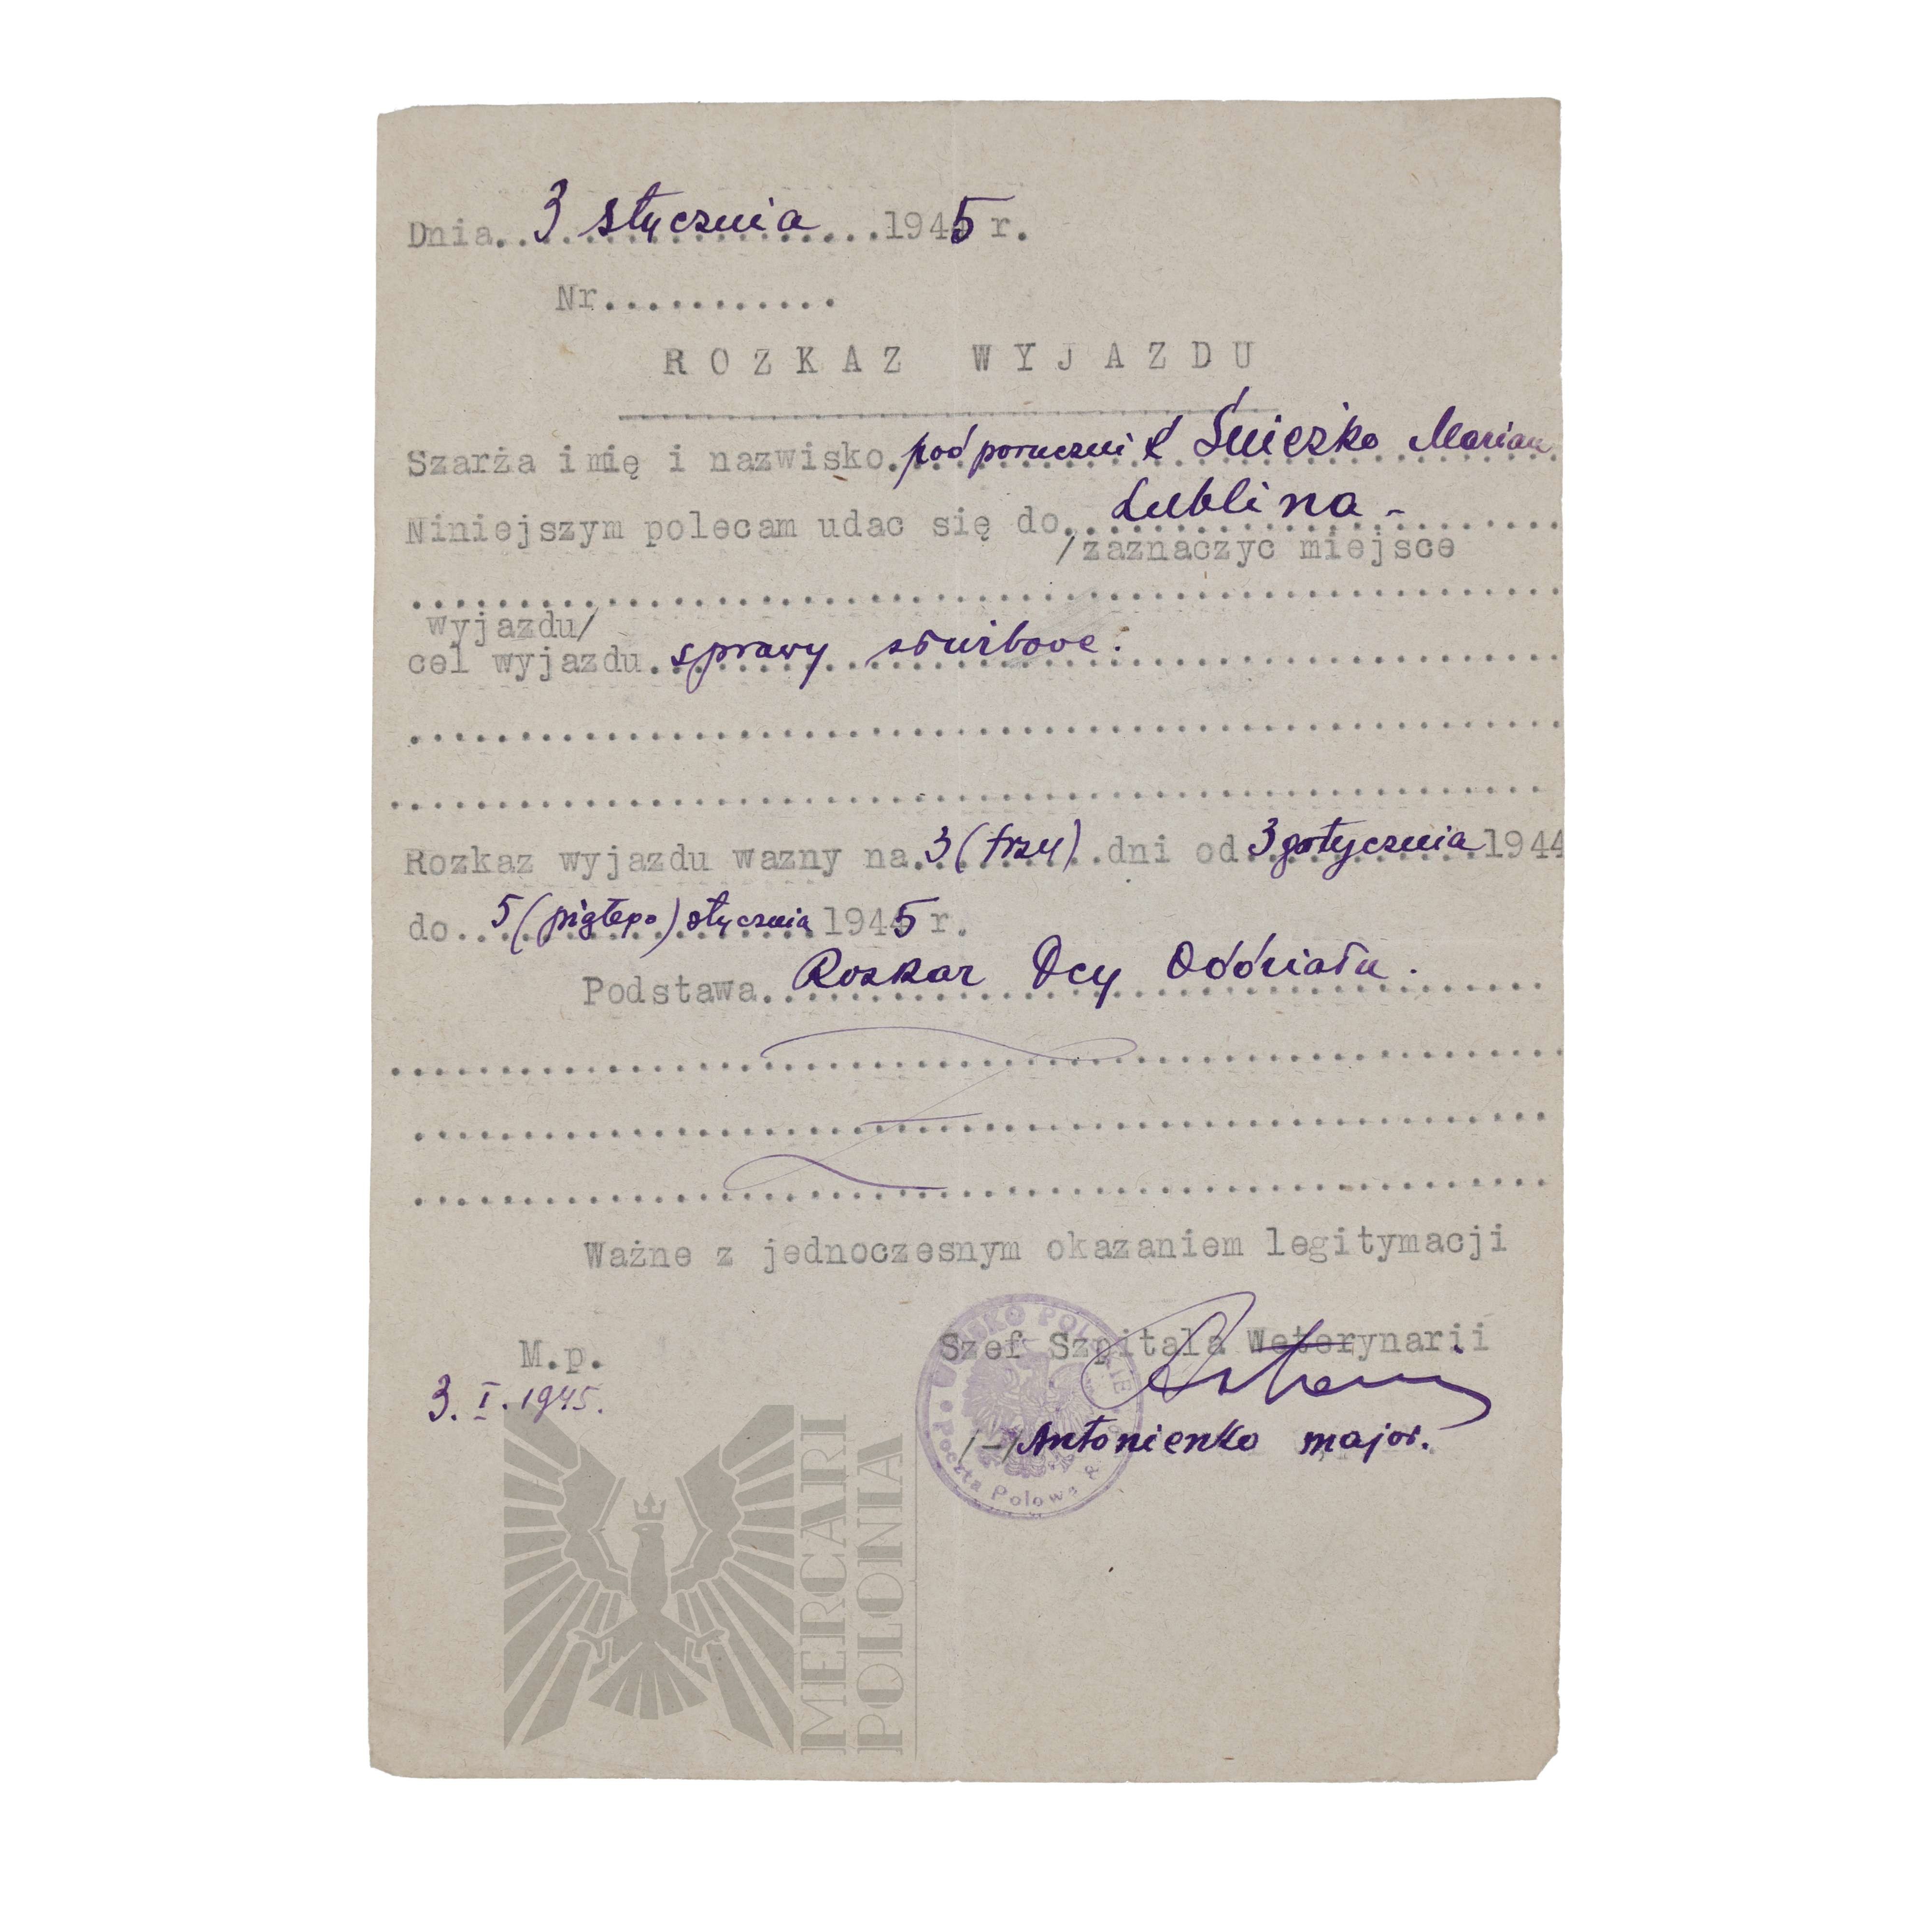 Dnia..3 stycznia...1945 r.
Nr............
ROZKAZ WYJAZDU
Szarża imię i nazwisko.podporucznik Śnieżko Marian
Niniejszym polecam udac się do..Lublina -
/zaznaczyc miejsce
wyjazdu/
cel wyjazdu.sprawy służbowe.
Rozkaz wyjazdu wazny na.3 (trzy)..dni od 3go stycznia 1944
do..5 (piątego) stycznia 1945 r.
Podstawa..Rozkaz Dcy Oddziału.
Ważne z jednoczesnym okazaniem legitymacji
Szef Szpitala Weterynarii
M.p.
3. I. 1945.
/-/Antonienko major.
WOJSKO POLSKIE
Poczta Polowa
MERCARI
POLONIA